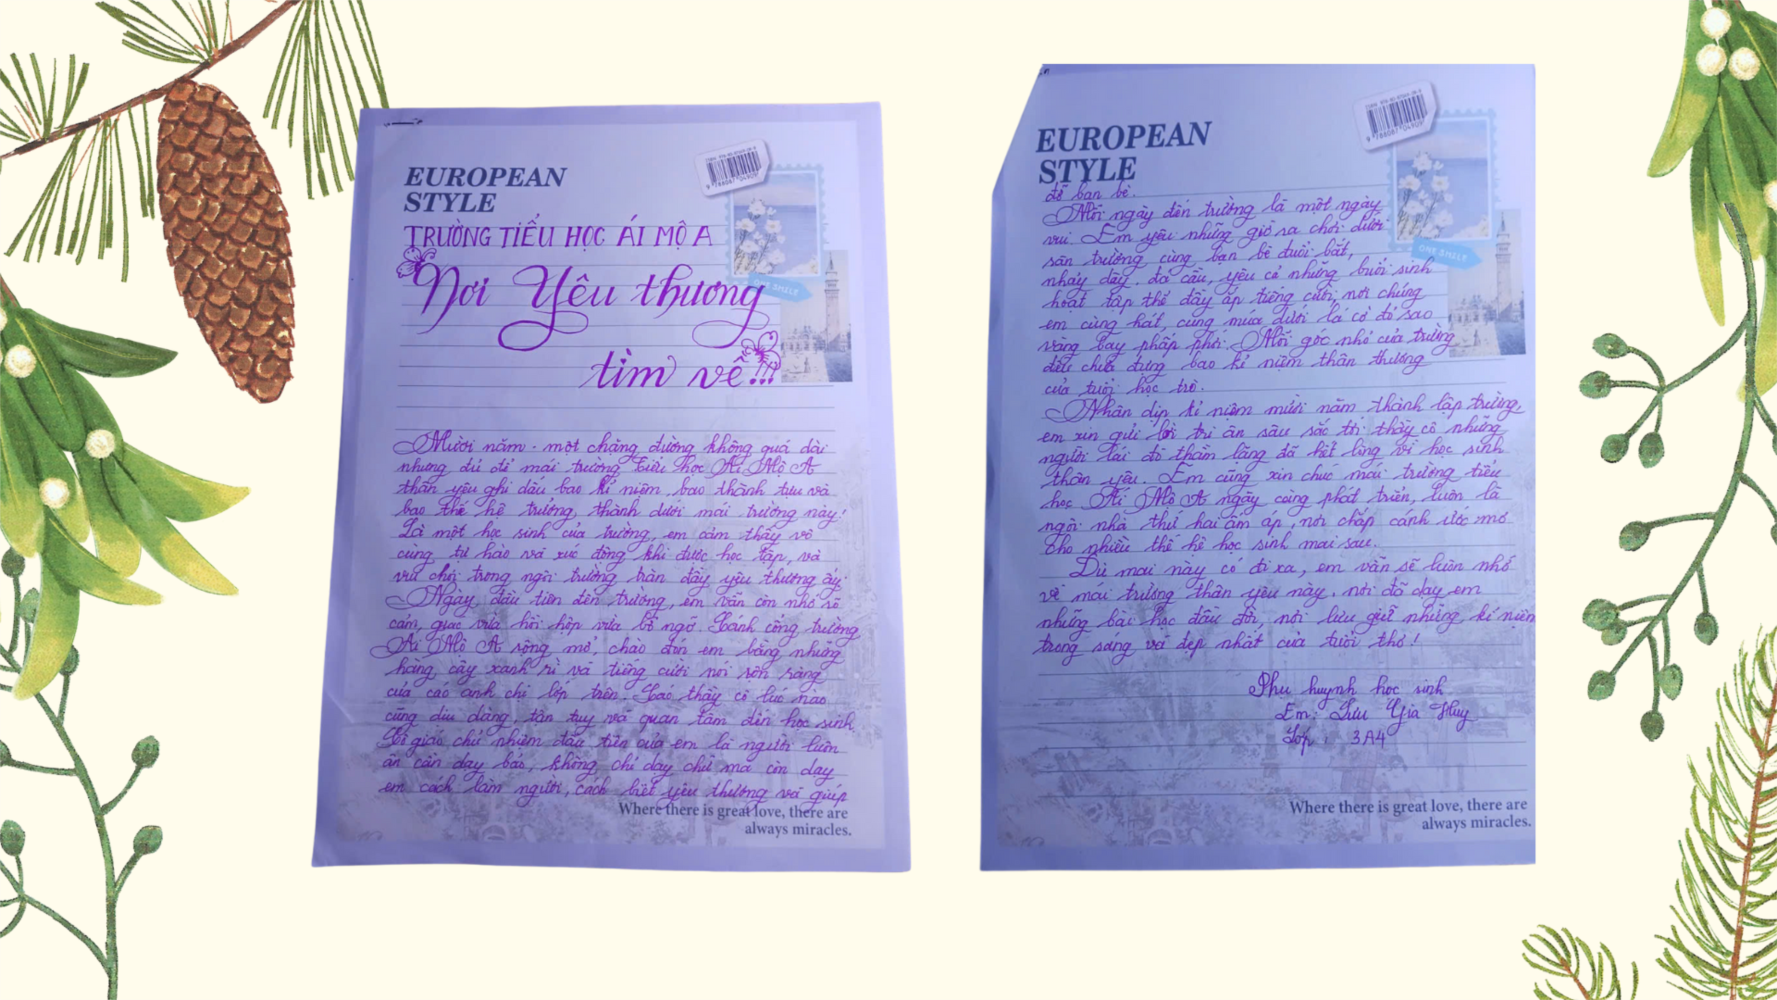 EUROPEAN
STYLE
TRƯỜNG TIỂU HỌC ÁI MỘ A
Nơi Yêu thương
tìm về!!!
ONE SMILE
Mười năm - một chặng đường không quá dài
nhưng đủ để mái trường tiểu học Ái Mộ A
thân yêu ghi dấu bao kỉ niệm, bao thành tựu và
bao thế hệ trưởng thành dưới mái trường này!
Là một học sinh của trường, em cảm thấy vô
cùng tự hào và xúc động khi được học tập, và
vui chơi trong ngôi trường tràn đầy yêu thương ấy.
Ngày đầu tiên đến trường, em vẫn còn nhớ rõ
cảm giác vừa hồi hộp vừa bỡ ngỡ. Cánh cổng trường
Ái Mộ A rộng mở, chào đón em bằng những
hàng cây xanh rì và tiếng cười nói rộn ràng
của các anh chị lớp trên. Các thầy cô lúc nào
cũng dịu dàng, tận tụy và quan tâm đến học sinh.
Cô giáo chủ nhiệm đầu tiên của em là người luôn
ân cần dạy bảo, không chỉ dạy chữ mà còn dạy
em cách làm người, cách biết yêu thương và giúp
Where there is great love, there are
always miracles.
EUROPEAN
STYLE
đỡ bạn bè.
Mỗi ngày đến trường là một ngày
vui. Em yêu những giờ ra chơi dưới
sân trường cùng bạn bè đuổi bắt,
nhảy dây, đá cầu, yêu cả những buổi sinh
hoạt tập thể đầy ắp tiếng cười, nơi chúng
em cùng hát, cùng múa dưới lá cờ đỏ sao
vàng bay phấp phới. Mỗi góc nhỏ của trường
đều chứa đựng bao kỉ niệm thân thương
của tuổi học trò.
ONE SMILE
Nhân dịp kỉ niệm mười năm thành lập trường,
em xin gửi lời tri ân sâu sắc tới thầy cô những
người lái đò thầm lặng đã hết lòng vì học sinh
thân yêu. Em cũng xin chúc mái trường tiểu
học Ái Mộ A ngày càng phát triển, luôn là
ngôi nhà thứ hai ấm áp, nơi chắp cánh ước mơ
cho nhiều thế hệ học sinh mai sau.
Dù mai này có đi xa, em vẫn sẽ luôn nhớ
về mái trường thân yêu này, nơi đã dạy em
những bài học đầu đời, nơi lưu giữ những kỉ niệm
trong sáng và đẹp nhất của tuổi thơ!
Phụ huynh học sinh
Em: Lưu Gia Huy
Lớp: 3A4
Where there is great love, there are
always miracles.